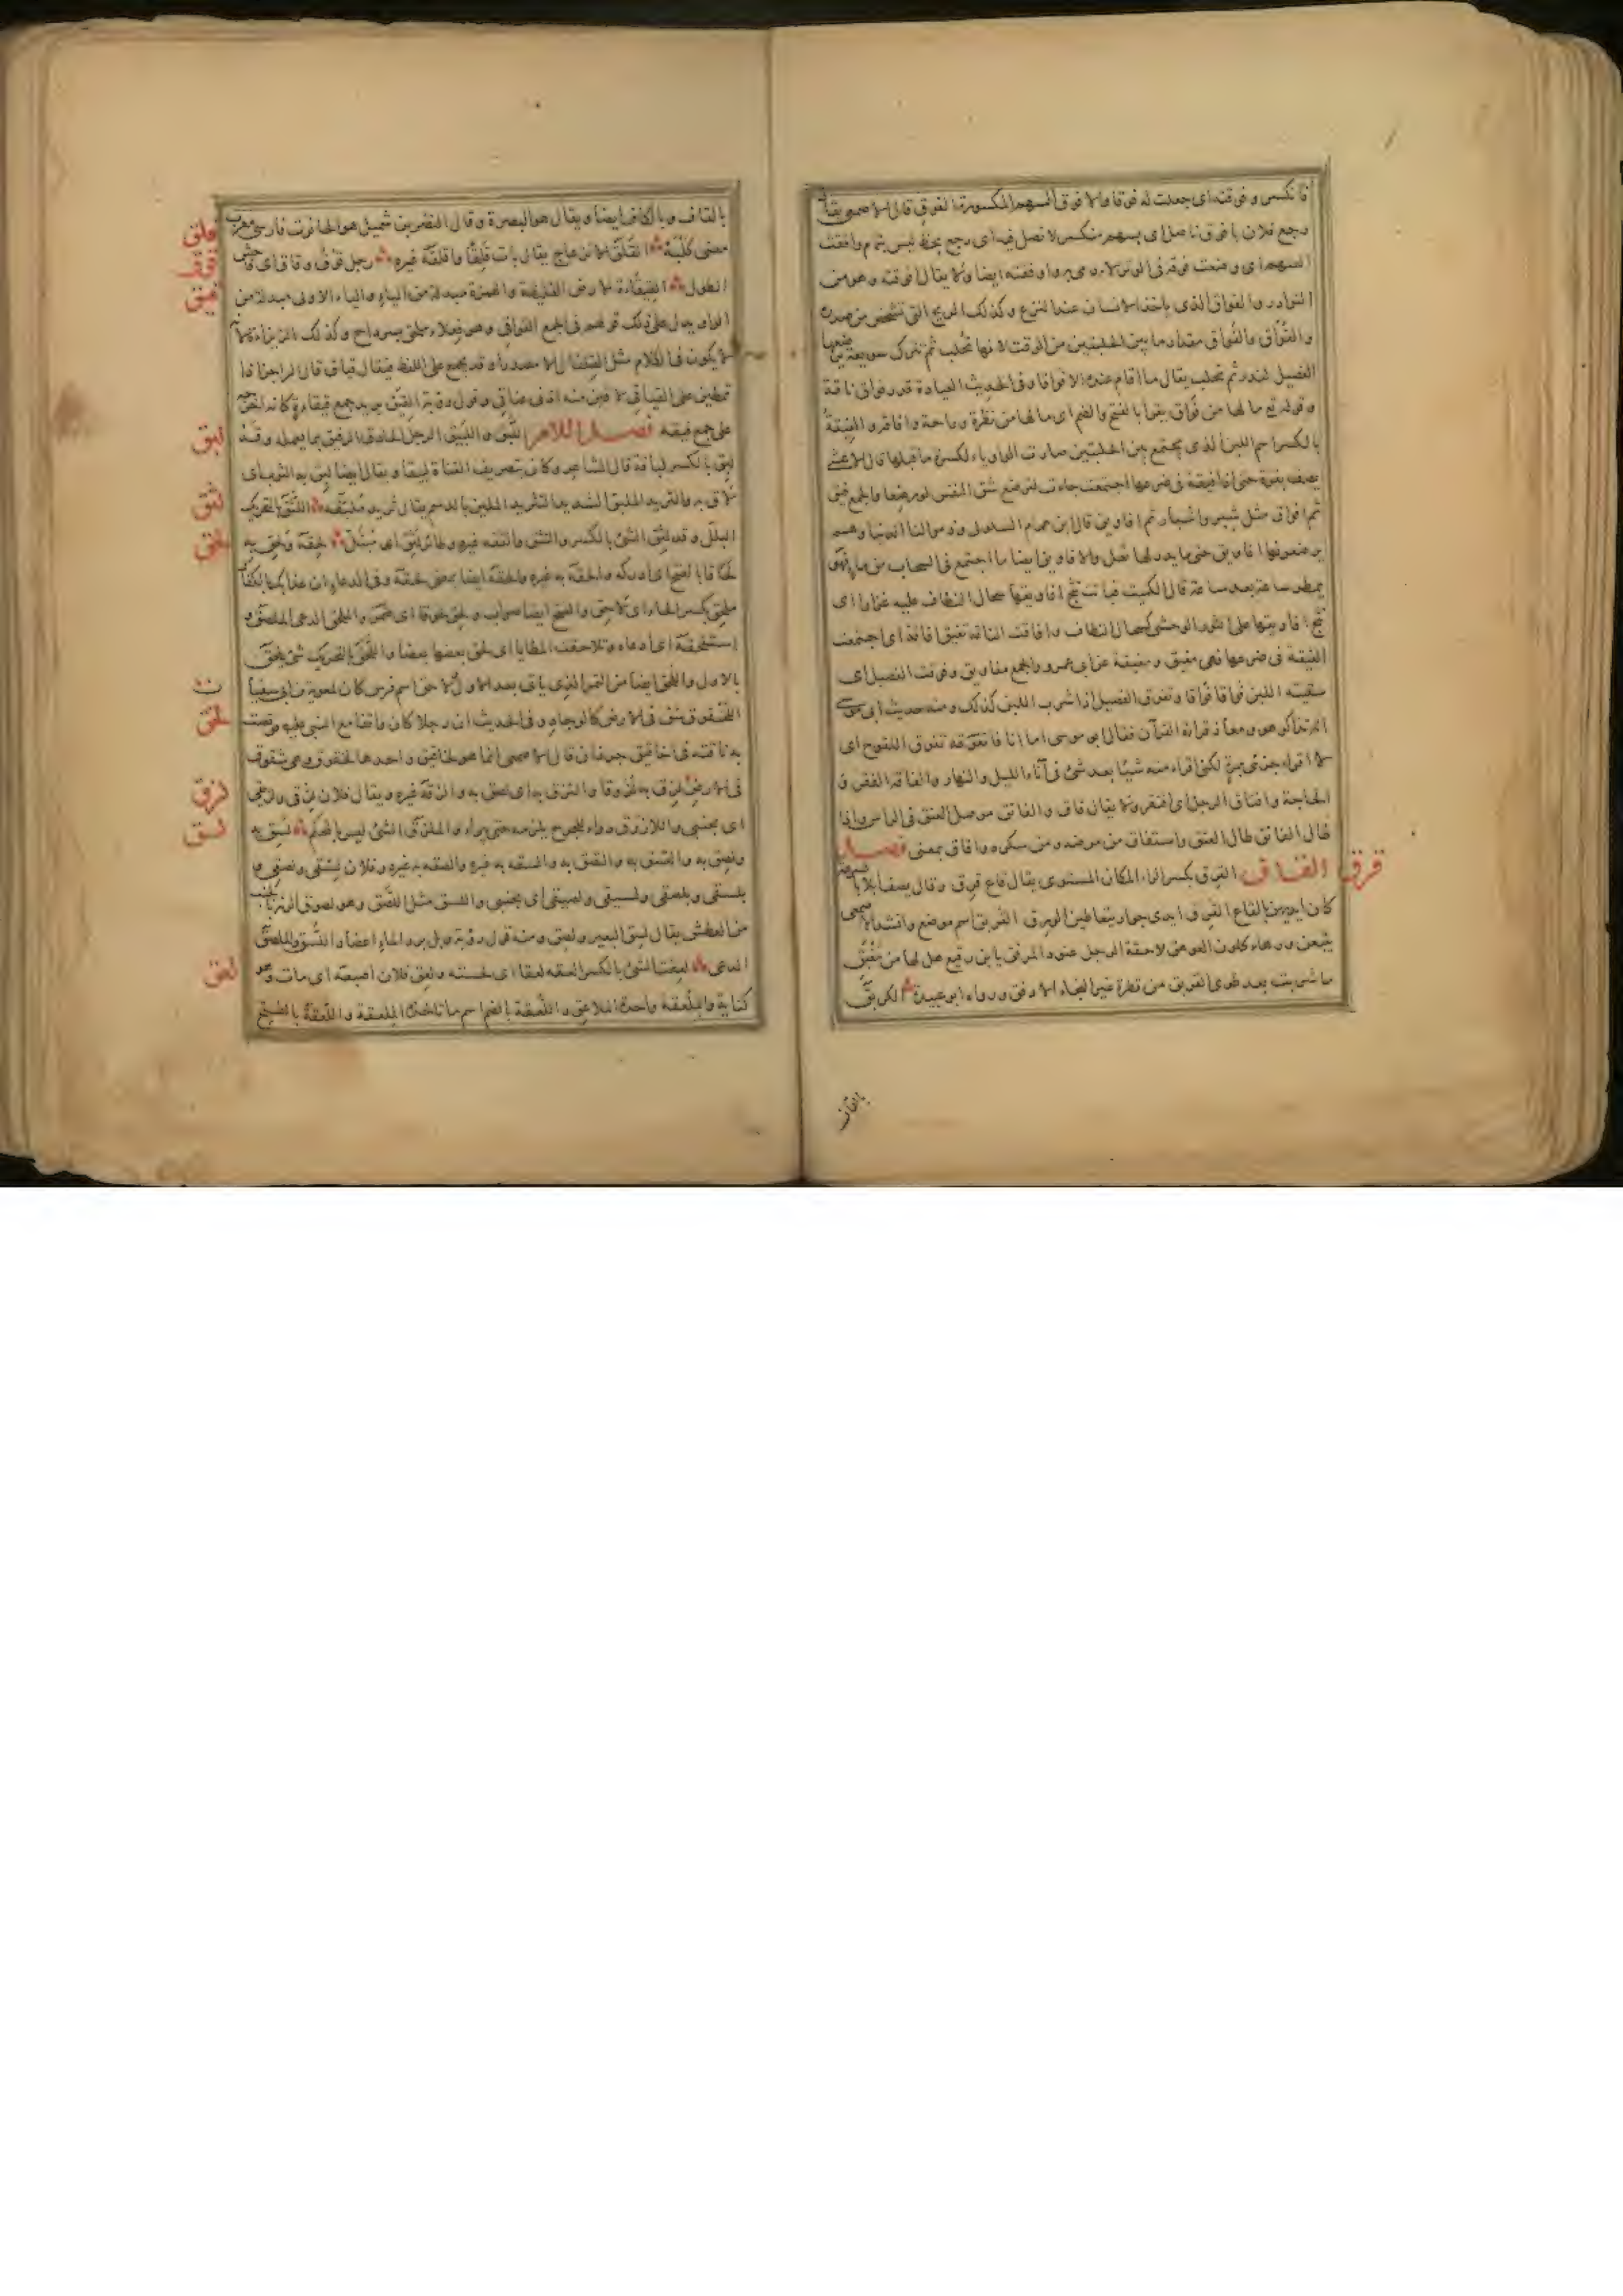 فانكسر وفوقته اى جعلت له فوقا والافوق السهم المكسور الفوق قال الاصمعى يقال
رجع فلان بافوق ناصل اى بسهم منكسر لا نصل فيه اى رجع بحظ ليس بتمام وافقت
السهم اى وضعت فوقه فى الوتر لارمى به واوفقته ايضا ولا يقال افوقته وهو من
النوادر والفواق الذى ياخذ الانسان عند النزع وكذلك الريح التى تشخص من صدره
والفُواق والفَواق مقدار ما بين الحلبتين من الوقت لانها تُحلب ثم تترك سويعة يرضعها
الفصيل لتدر ثم تحلب يقال ما اقام عنده الا فواقا وفى الحديث العيادة قدر فواق ناقة
وقوله تع ما لها من فواق يقرأ بالفتح والضم اى ما لها من نظرة وراحة وافاقة والفيقة
بالكسر اسم اللبن الذى يجتمع بين الحلبتين صارت الواو ياء لكسرة ما قبلها قال الاعشى
يصف بقرة حتى اذا فيقة فى ضرعها اجتمعت جاءت لترضع شق النفس لو رضعا والجمع فيق
ثم افواق مثل شبر واشبار ثم افاويق قال ابن همام السلولى وذموا لنا الدنيا وهم
يرضعونها افاويق حتى ما يدر لها ثعل والافاويق ايضا ما اجتمع فى السحاب من ماء فهو
يمطر ساعة بعد ساعة قال الكميت فباتت تثج افاويقها سجال النطاف عليه غزارا اى
تثج افاويقها على الثور الوحشى كسجال النطاف وافاقت الناقة تفيق افاقة اى اجتمعت
الفيقة فى ضرعها فهى مفيق ومفيقة عن ابى عمرو والجمع مفاويق وفوقت الفصيل اى
سقيته اللبن فواقا فواقا وتفوق الفصيل اذا شرب اللبن كذلك ومنه حديث ابى موسى
انه تذاكر هو ومعاذ قراءة القرآن فقال ابو موسى اما انا فاتفوقه تفوق اللقوح اى
لا اقراء جزئى بمرة لكنى اقراء منه شيئا بعد شئ فى آناء الليل والنهار والفاقة الفقر و
الحاجة وافتاق الرجل اى افتقر ولا يقال فاق والفائق موصل العنق فى الراس واذا
طال الفائق طال العنق واستفاق من مرضه ومن سكره وافاق بمعنى فصل
القاف القرق بكسر الراء المكان المستوى يقال قاع قرق وقال يصف ابلا
كان ايديهن بالقاع القرق ايدى جوار يتعاطين الورق القريق اسم موضع وانشد الاصمعى
يتبعن ورقاء كلون العوهق لاحقة الرجل عنود المرفق يا ابن رقيع هل لها من مغبق
ما شربت بعد طوى القريق من قطرة غير النجاء الادفق ورواه ابو عبيدة الكربق
قرق
بالقاف
بالقاف وبالكاف ايضا ويقال هو البصرة وقال النضر بن شميل هو الحانوت فارسى معرب
معنى كلبة القلق الانزعاج يقال بات قلقا واقلقه غيره رجل قوق وقاق اى فاحش
الطول القيقاءة الارض الغليظة والهمزة مبدلة من الياء والياء الاولى مبدلة من
الواو يدل على ذلك قولهم فى الجمع القواقى وهو فعلاء ملحق بسرداح وكذلك الزيزاءة لا
لا يكون فى الكلام مثل القلقال الا مصدرا وقد يجمع على اللفظ فيقال قياق قال الراجز اذا
تمطين على القياقى لاقين منه اذنى عناق وقول رؤبة القيق يريد جمع قيقاءة كانه
على جمع قيقة فصل اللام اللبق واللبيق الرجل الحاذق الرفيق بما يعمله وقد
لبق بالكسر لباقة قال الشاعر وكان بتصريف القناة لبيقا ويقال ايضا لبق به الثوب اى
لاق به والثريد الملبق الشديد التثريد الملين بالدسم يقال ثريد ملبقة اللثق بالتحريك
البلل وقد لثق الشئ بالكسر والتثق والثقه غيره وطائر لثق اى مبتل لحقه ولحق به
لحاقا بالفتح اى ادركه والحقه به غيره والحقه ايضا بمعنى لحقه وفى الدعاء ان عذابك بالكفار
ملحق بكسر الحاء اى لاحق والفتح ايضا صواب ولحق لحوقا اى ضمر والملحق الدعى الملصق و
استلحقه اى ادعاه وتلاحقت المطايا اى لحق بعضها بعضا واللحق بالتحريك شئ يلحق
بالاول واللحق ايضا من التمر الذى ياتى بعد الاول ولاحق اسم فرس كان لمعوية بن ابى سفيان
اللخقوق شق فى الارض كالوجار وفى الحديث ان رجلا كان واقفا مع النبى عليه فوقصت
به ناقته فى اخاقيق جرذان قال الاصمعى انما هو لخاقيق واحدها لخقوق وهى شقوق
فى الارض لزق به لزوقا والتزق به اى لصق به والزقه غيره ويقال فلان لزقى ولزيقى
اى بجنبى واللازوق دواء للجرح يلزمه حتى يبراء والملزق الشئ ليس بالمحكم لسق به
ولصق به والتسق به والتصق به والسقه به غيره والصقه به غيره وفلان لسقى ولصقى و
بلسقى وبلصقى ولسيقى ولصيقى اى بجنبى واللسق مثل اللصق وهو لصوق الرئة بالجنب
من العطش يقال لسق البعير ولصق ومنه قول رؤبة وبل برد الماء اعضاد اللسق والملصق
الدعى لعقت الشئ بالكسر العقه لعقا اى لحسته ولعق فلان اصبعه اى مات وهو
كناية والملعقة واحدة الملاعق واللعقة بالضم اسم ما تاخذه الملعقة واللعقة بالفتح
قلق
قوق
قيق
لبق
لثق
لحق
لخق
لزق
لسق
لعق